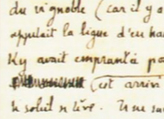 du vignoble (car il y a
appelait la ligne d'en ha
Ky avait empruntée pa
(est arriv
le soleil se lève. Une